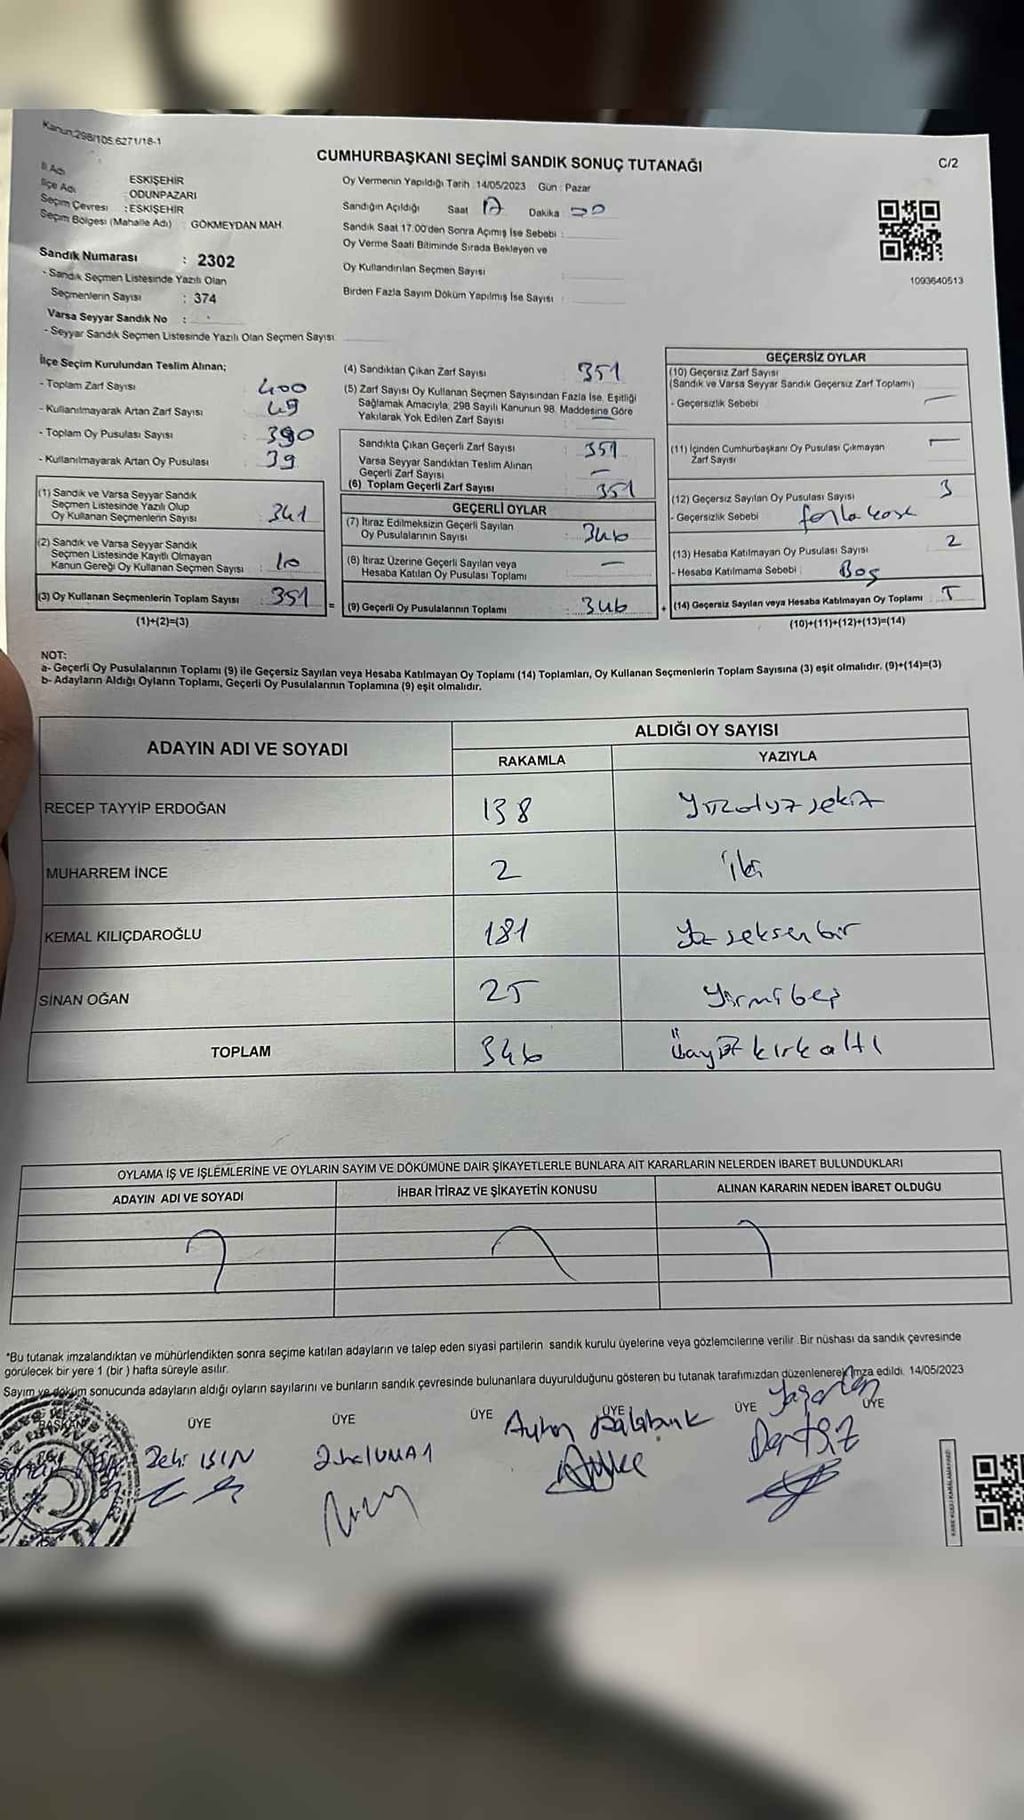 Kanun:298/105.6271/18-1
CUMHURBAŞKANI SEÇİMİ SANDIK SONUÇ TUTANAĞI
C/2
İl Adı ESKİŞEHİR
İlçe Adı ODUNPAZARI
Seçim Çevresi :ESKİŞEHİR
Seçim Bölgesi (Mahalle Adı) : GÖKMEYDAN MAH.
Sandık Numarası : 2302
- Sandık Seçmen Listesinde Yazılı Olan
Seçmenlerin Sayısı : 374
Varsa Seyyar Sandık No :
- Seyyar Sandık Seçmen Listesinde Yazılı Olan Seçmen Sayısı
Oy Vermenin Yapıldığı Tarih :14/05/2023 Gün : Pazar
Sandığın Açıldığı Saat 17 Dakika 00
Sandık Saat 17.00'den Sonra Açmış İse Sebebi :
Oy Verme Saati Bitiminde Sırada Bekleyen ve
Oy Kullandırılan Seçmen Sayısı
Birden Fazla Sayım Döküm Yapılmış İse Sayısı :
1093640513
İlçe Seçim Kurulundan Teslim Alınan;
- Toplam Zarf Sayısı : 400
- Kullanılmayarak Artan Zarf Sayısı : 49
- Toplam Oy Pusulası Sayısı : 390
- Kullanılmayarak Artan Oy Pusulası : 39
(1) Sandık ve Varsa Seyyar Sandık
Seçmen Listesinde Yazılı Olup
Oy Kullanan Seçmenlerin Sayısı : 341
(2) Sandık ve Varsa Seyyar Sandık
Seçmen Listesinde Kayıtlı Olmayan
Kanun Gereği Oy Kullanan Seçmen Sayısı : 10
(3) Oy Kullanan Seçmenlerin Toplam Sayısı : 351 =
(1)+(2)=(3)
(4) Sandıktan Çıkan Zarf Sayısı : 351
(5) Zarf Sayısı Oy Kullanan Seçmen Sayısından Fazla İse, Eşitliği
Sağlamak Amacıyla, 298 Sayılı Kanunun 98. Maddesine Göre
Yakılarak Yok Edilen Zarf Sayısı : —
Sandıkta Çıkan Geçerli Zarf Sayısı : 351
Varsa Seyyar Sandıktan Teslim Alınan
Geçerli Zarf Sayısı : —
(6) Toplam Geçerli Zarf Sayısı : 351
GEÇERLİ OYLAR
(7) İtiraz Edilmeksizin Geçerli Sayılan
Oy Pusulalarının Sayısı : 346
(8) İtiraz Üzerine Geçerli Sayılan veya
Hesaba Katılan Oy Pusulası Toplamı : —
(9) Geçerli Oy Pusulalarının Toplamı : 346 +
GEÇERSİZ OYLAR
(10) Geçersiz Zarf Sayısı
(Sandık ve Varsa Seyyar Sandık Geçersiz Zarf Toplamı)
- Geçersizlik Sebebi —
(11) İçinden Cumhurbaşkanı Oy Pusulası Çıkmayan
Zarf Sayısı —
(12) Geçersiz Sayılan Oy Pusulası Sayısı 3
- Geçersizlik Sebebi : fazla kaşe
(13) Hesaba Katılmayan Oy Pusulası Sayısı 2
- Hesaba Katılmama Sebebi : Boş
(14) Geçersiz Sayılan veya Hesaba Katılmayan Oy Toplamı : 5
(10)+(11)+(12)+(13)=(14)
NOT:
a- Geçerli Oy Pusulalarının Toplamı (9) ile Geçersiz Sayılan veya Hesaba Katılmayan Oy Toplamı (14) Toplamları, Oy Kullanan Seçmenlerin Toplam Sayısına (3) eşit olmalıdır. (9)+(14)=(3)
b- Adayların Aldığı Oyların Toplamı, Geçerli Oy Pusulalarının Toplamına (9) eşit olmalıdır.
ADAYIN ADI VE SOYADI
ALDIĞI OY SAYISI
RAKAMLA YAZIYLA
RECEP TAYYİP ERDOĞAN 138 Yüzotuzsekiz
MUHARREM İNCE 2 iki
KEMAL KILIÇDAROĞLU 181 Yüz seksen bir
SİNAN OĞAN 25 Yirmibeş
TOPLAM 346 Üçyüz kırk altı
OYLAMA İŞ VE İŞLEMLERİNE VE OYLARIN SAYIM VE DÖKÜMÜNE DAİR ŞİKAYETLERLE BUNLARA AİT KARARLARIN NELERDEN İBARET BULUNDUKLARI
ADAYIN ADI VE SOYADI İHBAR İTİRAZ VE ŞİKAYETİN KONUSU ALINAN KARARIN NEDEN İBARET OLDUĞU
*Bu tutanak imzalandıktan ve mühürlendikten sonra seçime katılan adayların ve talep eden siyasi partilerin sandık kurulu üyelerine veya gözlemcilerine verilir. Bir nüshası da sandık çevresinde
görülecek bir yere 1 (bir) hafta süreyle asılır.
Sayım ve döküm sonucunda adayların aldığı oyların sayılarını ve bunların sandık çevresinde bulunanlara duyurulduğunu gösteren bu tutanak tarafımızdan düzenlenerek imza edildi. 14/05/2023
BAŞKAN ÜYE ÜYE ÜYE ÜYE ÜYE ÜYE